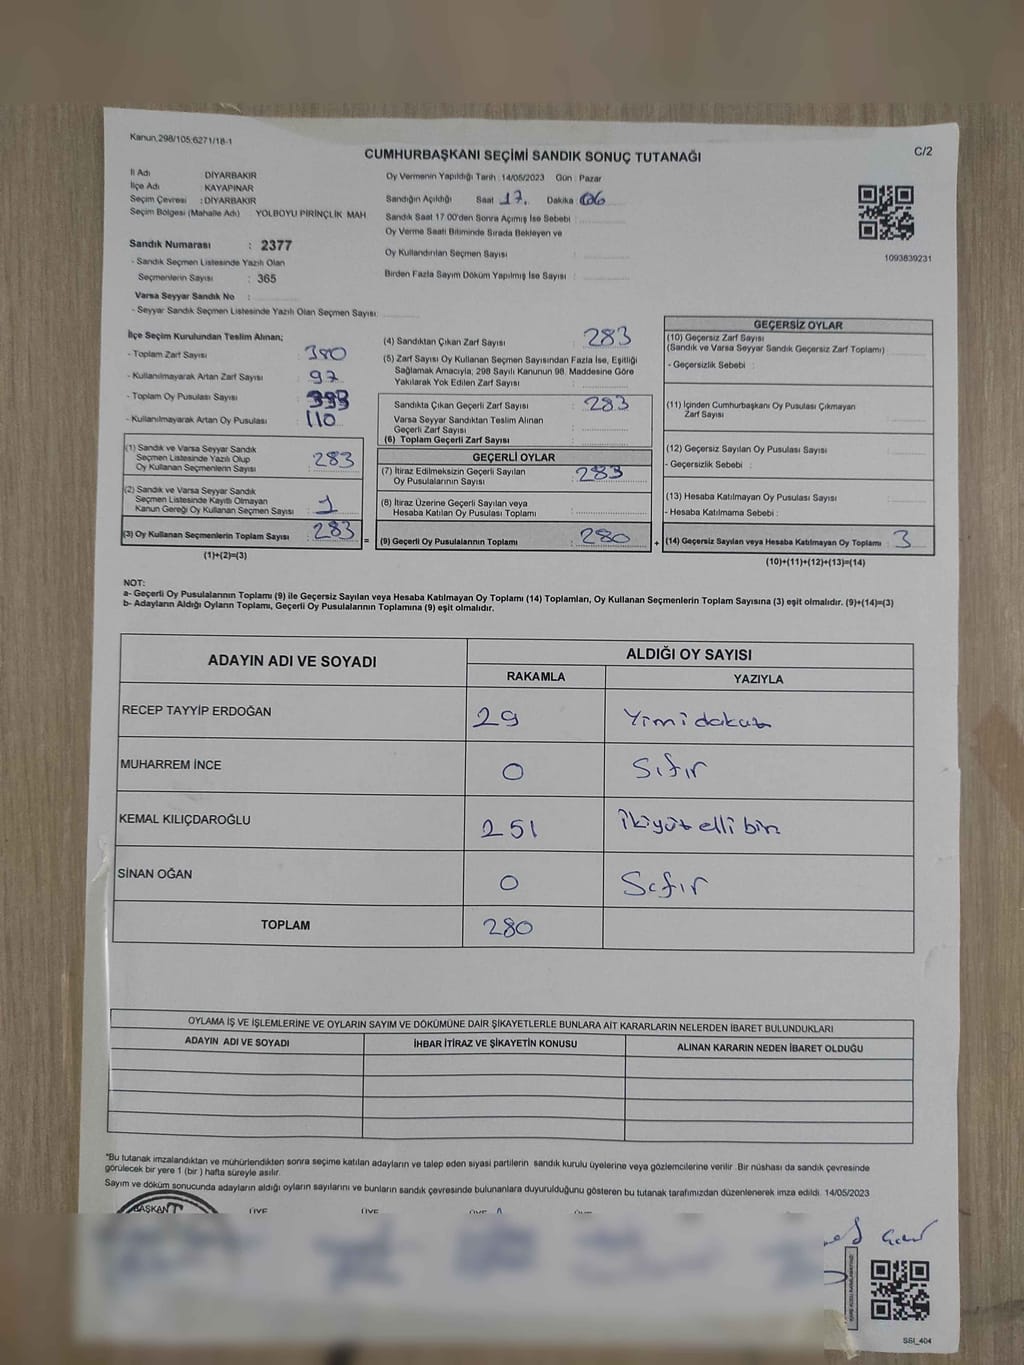 Kanun.298/105;6271/18-1
CUMHURBAŞKANI SEÇİMİ SANDIK SONUÇ TUTANAĞI
C/2
İl Adı DİYARBAKIR
İlçe Adı KAYAPINAR
Seçim Çevresi : DİYARBAKIR
Seçim Bölgesi (Mahalle Adı) YOLBOYU PİRİNÇLİK MAH
Sandık Numarası : 2377
- Sandık Seçmen Listesinde Yazılı Olan
Seçmenlerin Sayısı : 365
Varsa Seyyar Sandık No :
- Seyyar Sandık Seçmen Listesinde Yazılı Olan Seçmen Sayısı:
Oy Vermenin Yapıldığı Tarih : 14/05/2023 Gün : Pazar
Sandığın Açıldığı Saat 17. Dakika : 06
Sandık Saat 17.00'den Sonra Açımış İse Sebebi :
Oy Verme Saati Bitiminde Sırada Bekleyen ve
Oy Kullandırılan Seçmen Sayısı :
Birden Fazla Sayım Döküm Yapılmış İse Sayısı :
1093839231
İlçe Seçim Kurulundan Teslim Alınan;
- Toplam Zarf Sayısı : 380
- Kullanılmayarak Artan Zarf Sayısı : 97
- Toplam Oy Pusulası Sayısı : 393
- Kullanılmayarak Artan Oy Pusulası : 110
(1) Sandık ve Varsa Seyyar Sandık
Seçmen Listesinde Yazılı Olup
Oy Kullanan Seçmenlerin Sayısı : 283
(2) Sandık ve Varsa Seyyar Sandık
Seçmen Listesinde Kayıtlı Olmayan
Kanun Gereği Oy Kullanan Seçmen Sayısı : 1
(3) Oy Kullanan Seçmenlerin Toplam Sayısı : 283
(1)+(2)=(3)
=
(4) Sandıktan Çıkan Zarf Sayısı : 283
(5) Zarf Sayısı Oy Kullanan Seçmen Sayısından Fazla İse, Eşitliği
Sağlamak Amacıyla; 298 Sayılı Kanunun 98. Maddesine Göre
Yakılarak Yok Edilen Zarf Sayısı :
Sandıkta Çıkan Geçerli Zarf Sayısı : 283
Varsa Seyyar Sandıktan Teslim Alınan
Geçerli Zarf Sayısı :
(6) Toplam Geçerli Zarf Sayısı :
GEÇERLİ OYLAR
(7) İtiraz Edilmeksizin Geçerli Sayılan
Oy Pusulalarının Sayısı : 283
(8) İtiraz Üzerine Geçerli Sayılan veya
Hesaba Katılan Oy Pusulası Toplamı :
(9) Geçerli Oy Pusulalarının Toplamı : 280
+
GEÇERSİZ OYLAR
(10) Geçersiz Zarf Sayısı
(Sandık ve Varsa Seyyar Sandık Geçersiz Zarf Toplamı)
- Geçersizlik Sebebi :
(11) İçinden Cumhurbaşkanı Oy Pusulası Çıkmayan
Zarf Sayısı
(12) Geçersiz Sayılan Oy Pusulası Sayısı :
- Geçersizlik Sebebi :
(13) Hesaba Katılmayan Oy Pusulası Sayısı :
- Hesaba Katılmama Sebebi :
(14) Geçersiz Sayılan veya Hesaba Katılmayan Oy Toplamı : 3
(10)+(11)+(12)+(13)=(14)
NOT:
a- Geçerli Oy Pusulalarının Toplamı (9) ile Geçersiz Sayılan veya Hesaba Katılmayan Oy Toplamı (14) Toplamları, Oy Kullanan Seçmenlerin Toplam Sayısına (3) eşit olmalıdır. (9)+(14)=(3)
b- Adayların Aldığı Oyların Toplamı, Geçerli Oy Pusulalarının Toplamına (9) eşit olmalıdır.
ADAYIN ADI VE SOYADI ALDIĞI OY SAYISI
RAKAMLA YAZIYLA
RECEP TAYYİP ERDOĞAN 29 Yimi dokuz
MUHARREM İNCE 0 Sıfır
KEMAL KILIÇDAROĞLU 251 ikiyüz elli bir
SİNAN OĞAN 0 Sıfır
TOPLAM 280
OYLAMA İŞ VE İŞLEMLERİNE VE OYLARIN SAYIM VE DÖKÜMÜNE DAİR ŞİKAYETLERLE BUNLARA AİT KARARLARIN NELERDEN İBARET BULUNDUKLARI
ADAYIN ADI VE SOYADI İHBAR İTİRAZ VE ŞİKAYETİN KONUSU ALINAN KARARIN NEDEN İBARET OLDUĞU
*Bu tutanak imzalandıktan ve mühürlendikten sonra seçime katılan adayların ve talep eden siyasi partilerin sandık kurulu üyelerine veya gözlemcilerine verilir .Bir nüshası da sandık çevresinde
görülecek bir yere 1 (bir ) hafta süreyle asılır.
Sayım ve döküm sonucunda adayların aldığı oyların sayılarını ve bunların sandık çevresinde bulunanlara duyurulduğunu gösteren bu tutanak tarafımızdan düzenlenerek imza edildi. 14/05/2023
BAŞKAN ÜYE ÜYE ÜYE
SSİ_404